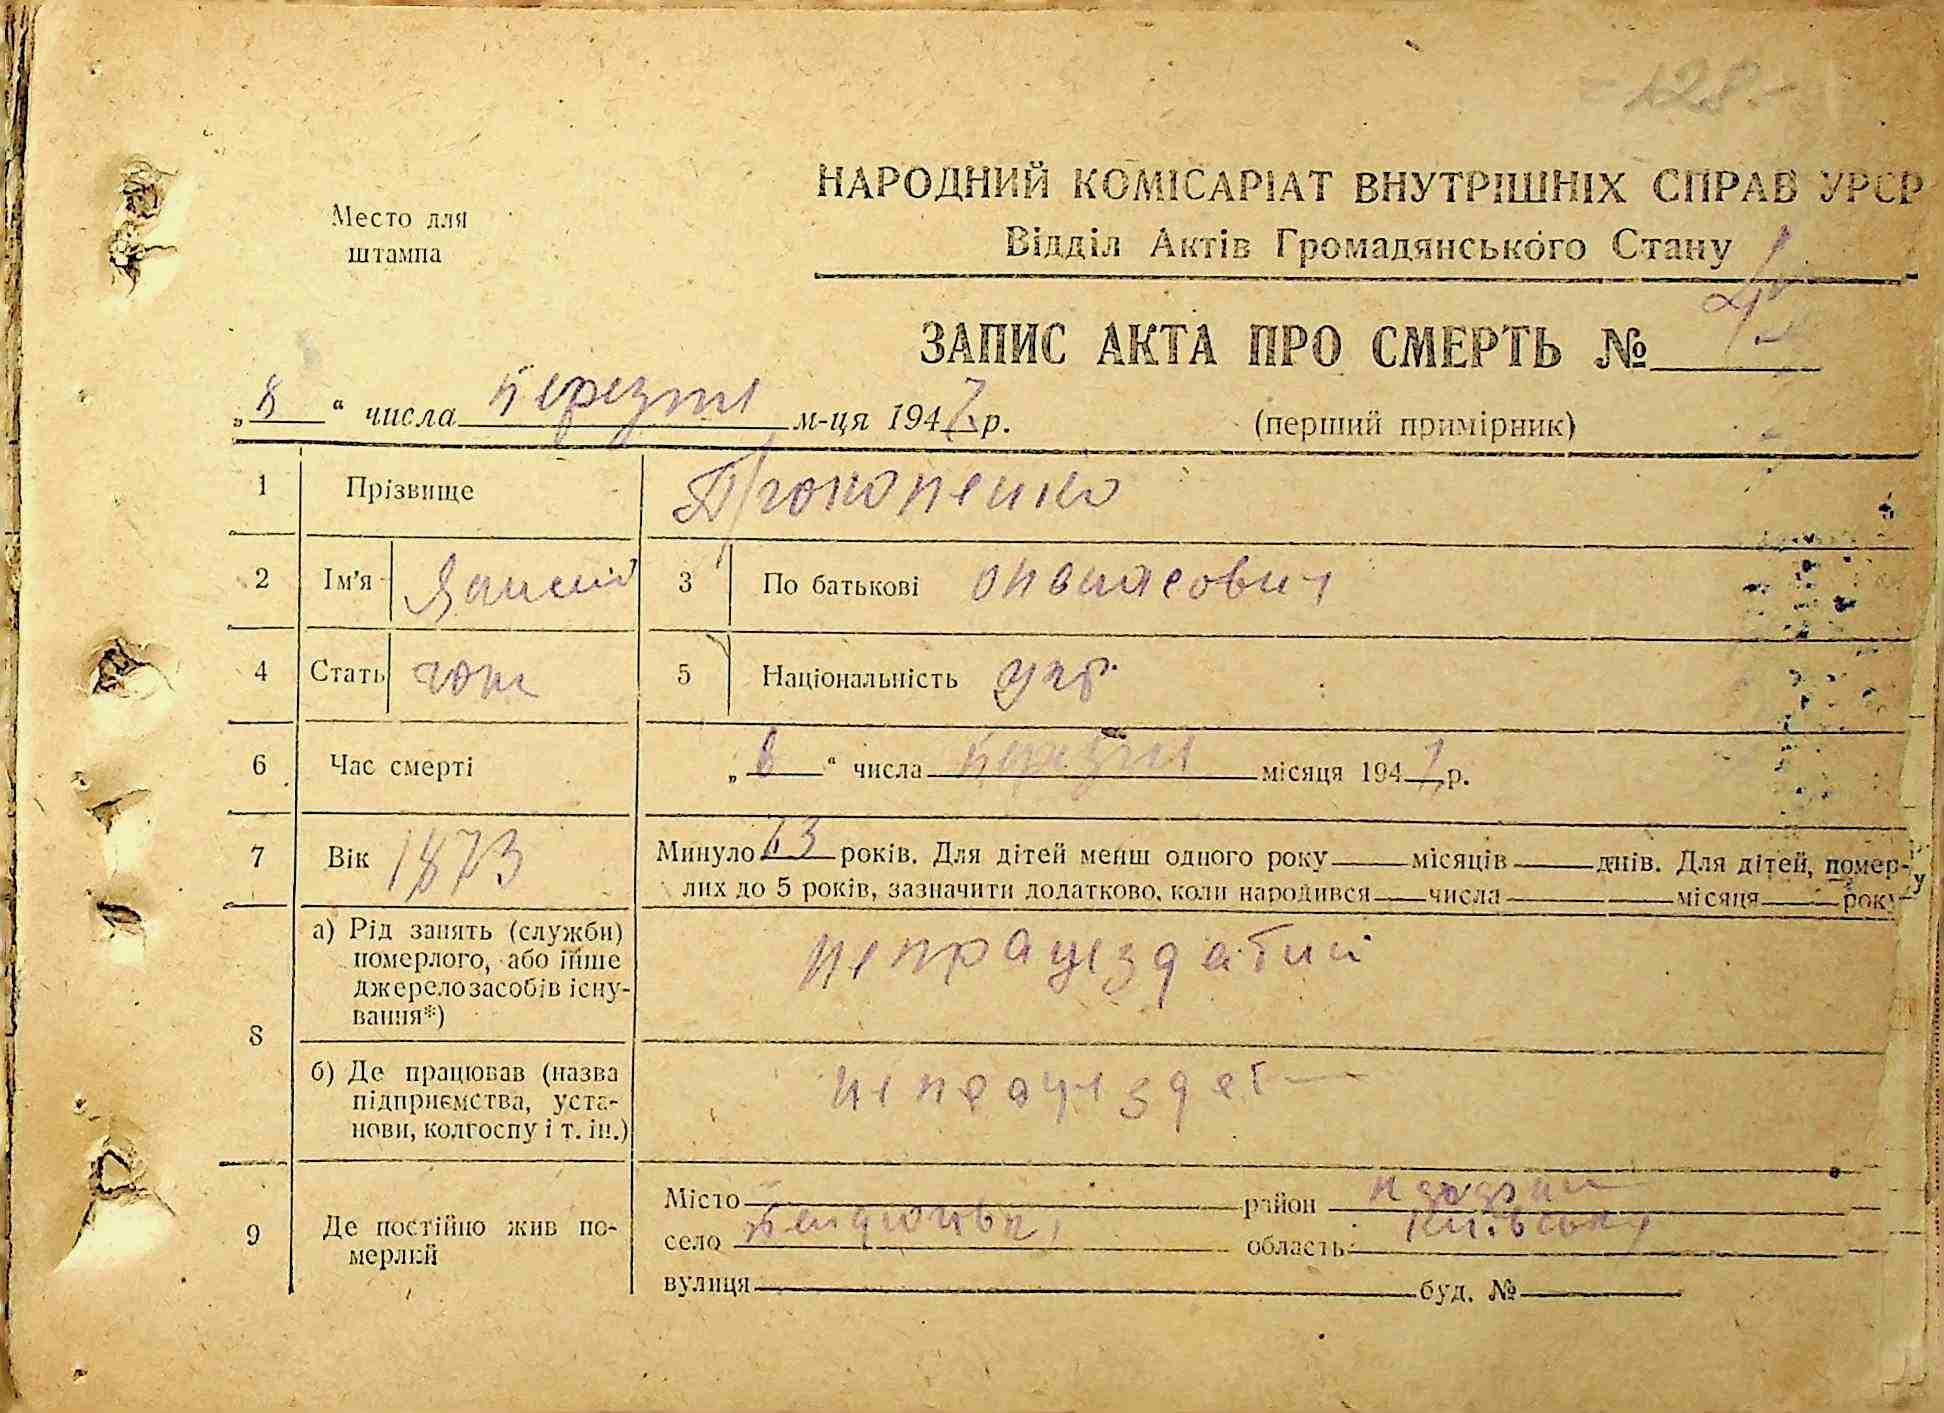 128
Место для
штампа
НАРОДНИЙ КОМІСАРІАТ ВНУТРІШНІХ СПРАВ УРСР
Відділ Актів Громадянського Стану
ЗАПИС АКТА ПРО СМЕРТЬ №
„8“ числа березня м-ця 1947 р.
(перший примірник)
1 Прізвище Прокопенко
2 Ім'я 3 По батькові Опанасович
4 Стать чол 5 Національність укр.
6 Час смерті „8“ числа березня місяця 1947 р.
7 Вік 1873 Минуло років. Для дітей менш одного року місяців днів. Для дітей, помер-
лих до 5 років, зазначити додатково, коли народився числа місяця року
8 а) Рід занять (служби)
померлого, або інше
джерело засобів існу-
вання*)
непрацездатний
б) Де працював (назва
підприємства, уста-
нови, колгоспу і т. ін.)
непрацездат
9 Де постійно жив по-
мерлий
Місто район
село область Київська
вулиця буд. №